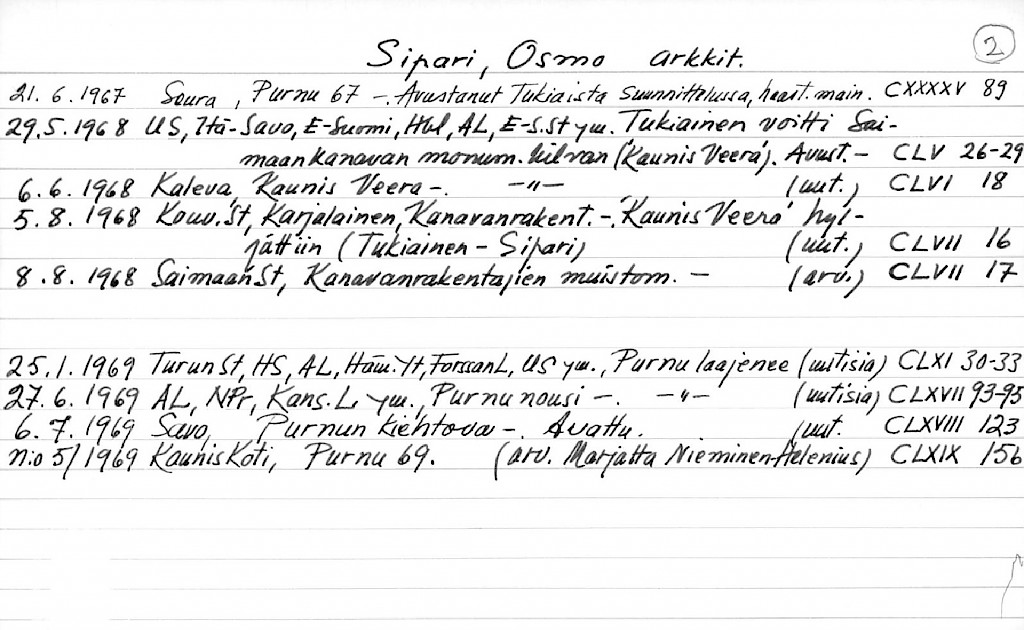 2
Sipari, Osmo arkkit.
21. 6. 1967 Seura, Purnu 67 -. Avustanut Tukiaista suunnittelussa, haast. main. CXXXXV 89
29.5.1968 US, Itä-Savo, E-Suomi, Hbl, AL, E-S.St ym. Tukiainen voitti Sai-
maan kanavan monum. kilvan ('Kaunis Veera'). Avust. - CLV 26-29
6. 6. 1968 Kaleva, Kaunis Veera -. -"- (uut.) CLVI 18
5. 8. 1968 Kouv.St, Karjalainen, Kanavanrakent. -. 'Kaunis Veera' hyl-
jättiin (Tukiainen - Sipari) (uut.) CLVII 16
8. 8. 1968 SaimaanSt, Kanavanrakentajien muistom. - (arv.) CLVII 17
25.1.1969 TurunSt, HS, AL, Häm.Yt, ForssanL, US ym., Purnu laajenee (uutisia) CLXI 30-33
27. 6. 1969 AL, NPr, Kans.L ym., Purnu nousi -. -"- (uutisia) CLXVII 93-95
6. 7. 1969 Savo, Purnun kiehtova -. Avattu. (uut. CLXVIII 123
n:o 5/1969 KaunisKoti, Purnu 69. (arv. Marjatta Nieminen-Helenius) CLXIX 156